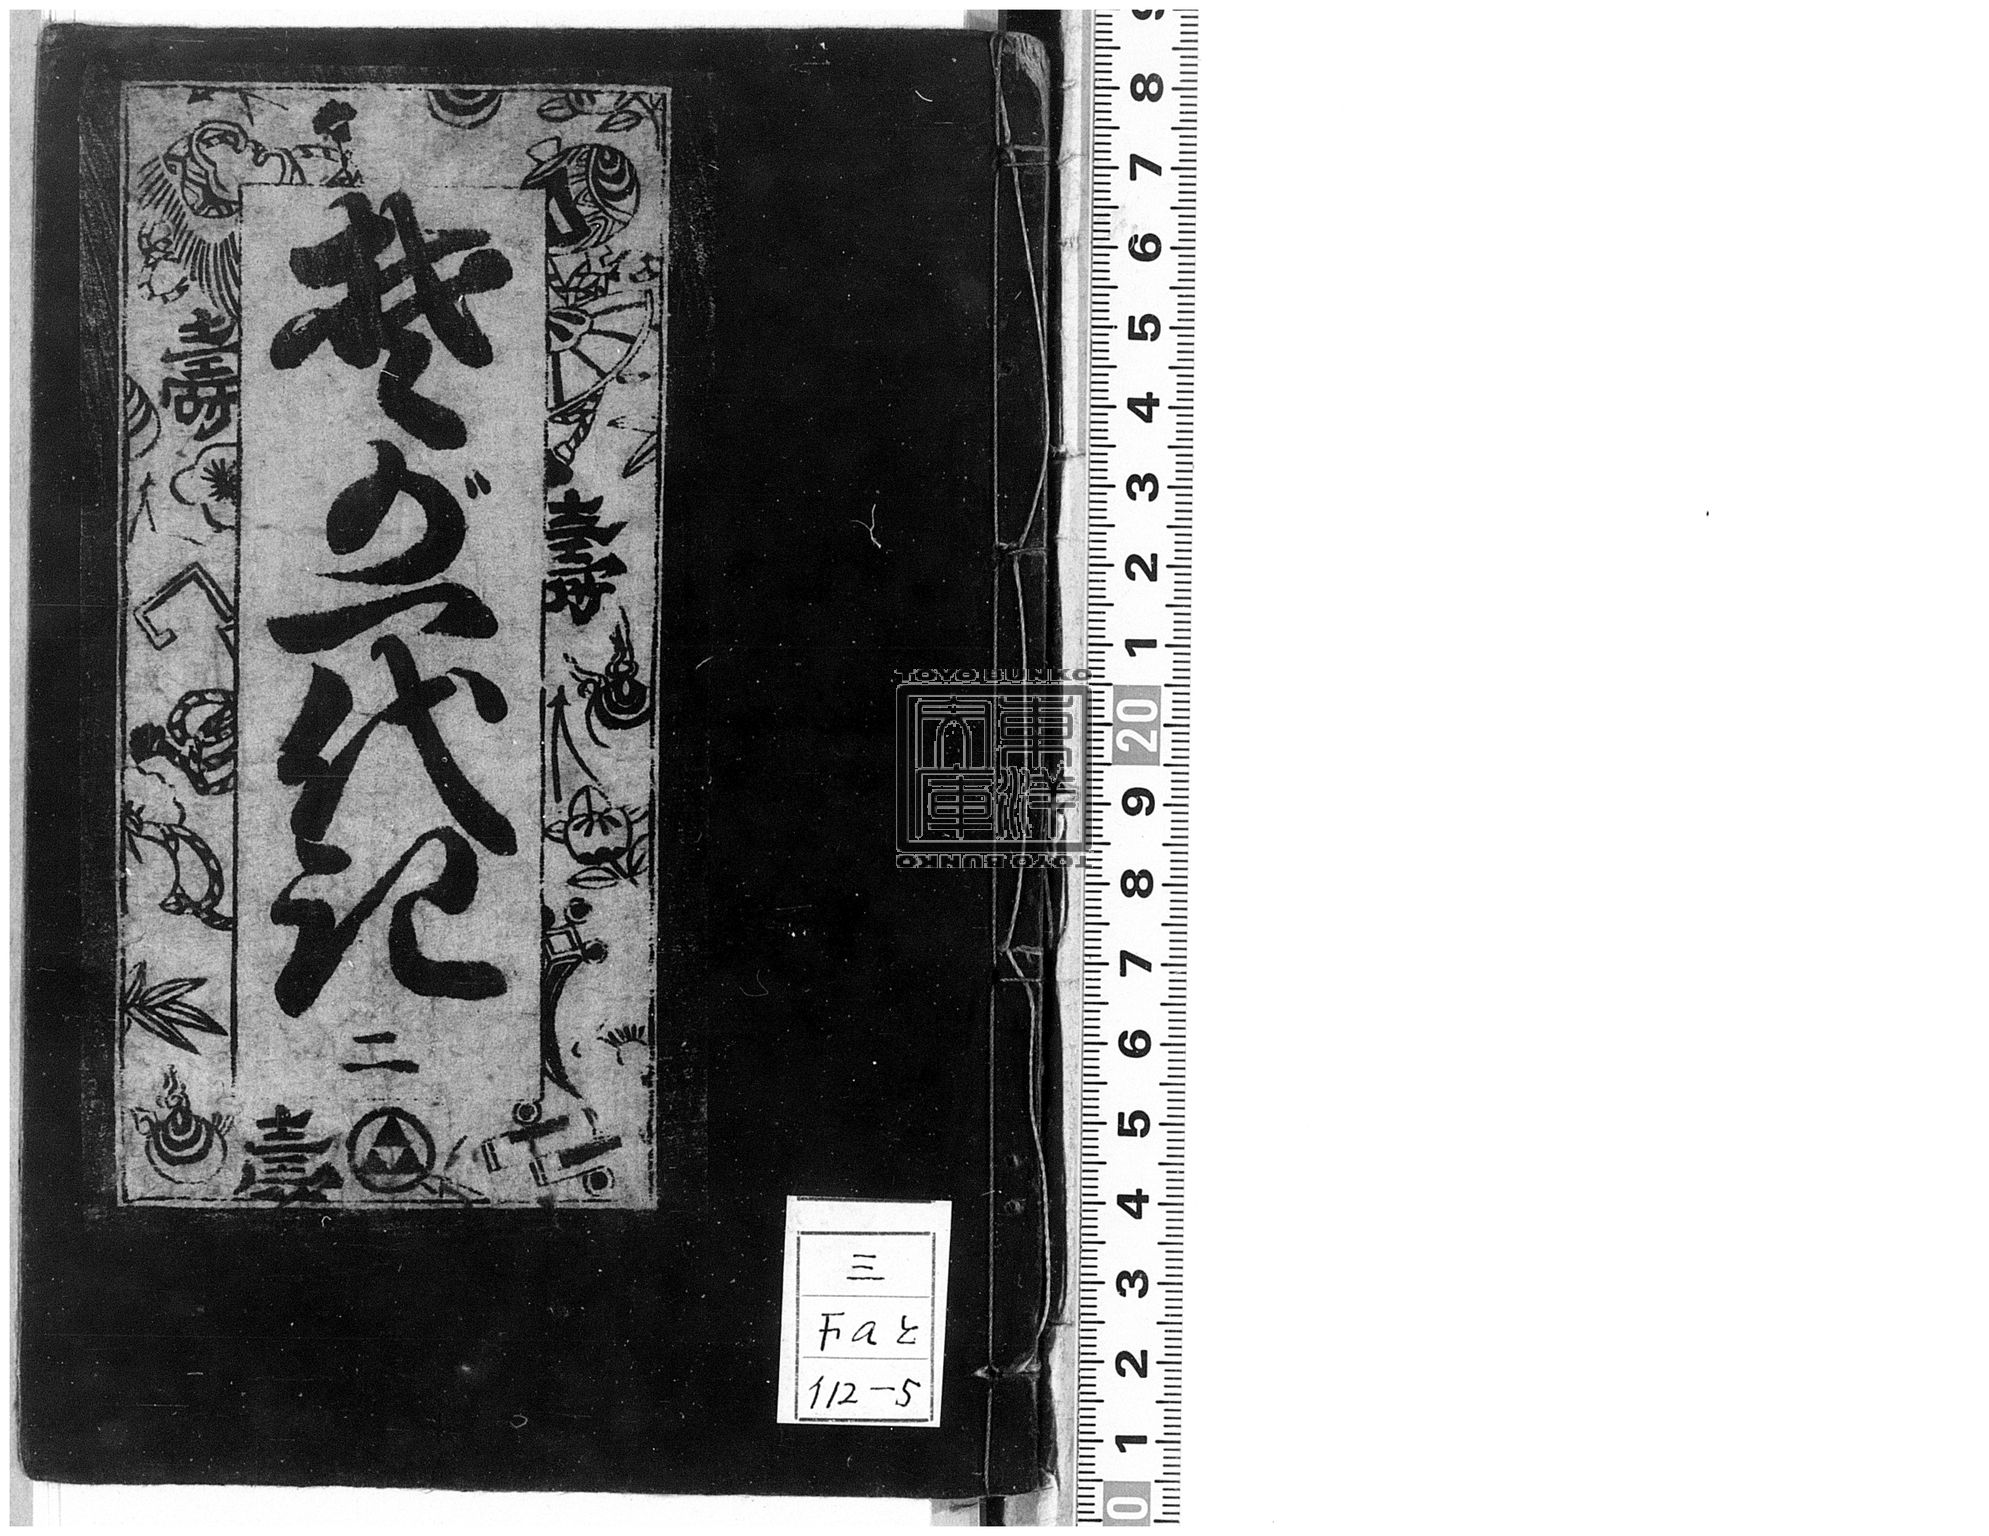 楚が一代記
二
壽
壽
壽
三
Faと
112-5
TOYO BUNKO
東洋文庫
TOYO BUNKO
9
8
7
6
5
4
3
2
1
20
9
8
7
6
5
4
3
2
1
0